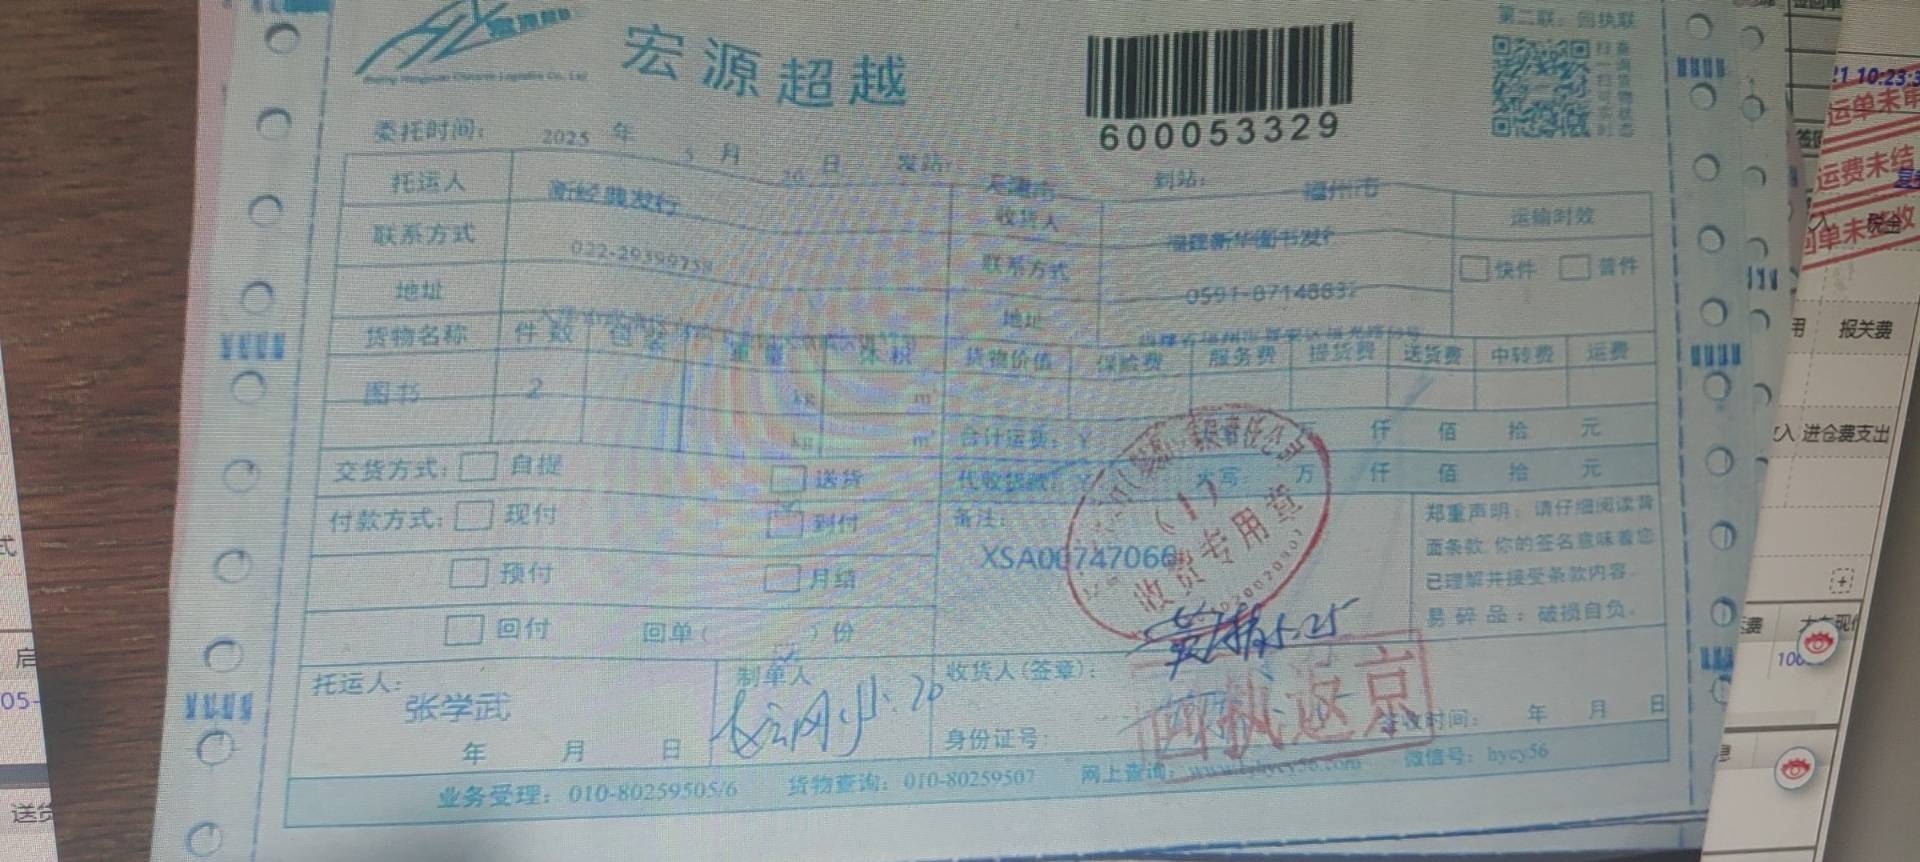 宏源超越
第二联：回执联
600053329
委托时间： 2025 年 5 月 20 日 发站： 天津市 到站： 福州市
托运人 新经典发行 收货人 福建新华图书发行 运输时效
联系方式 022-29399758 联系方式 0591-87148832 快件 普件
地址 地址
货物名称 件数 包装 重量 体积 货物价值 保险费 服务费 提货费 送货费 中转费 运费
图书 2 kg m³
kg m³ 合计运费：¥ 万 仟 佰 拾 元
交货方式： 自提 送货 代收货款：¥ 大写： 万 仟 佰 拾 元
付款方式： 现付 到付 备注： 郑重声明：请仔细阅读背
面条款，你的签名意味着您
XSA00747066
已理解并接受条款内容。
预付 月结
易碎品：破损自负。
回付 回单（ ）份
(1)
收货专用章
5.25
托运人： 制单人 收货人(签章)：
张学武
回执返京
年 月 日 身份证号： 签收时间： 年 月 日
业务受理：010-80259505/6 货物查询：010-80259507 网上查询：www.bjhycy56.com 微信号：hycy56
10:23:3
运单未审
运费未结
回单未签收
税金
报关费
进仓费支出
05-
送货